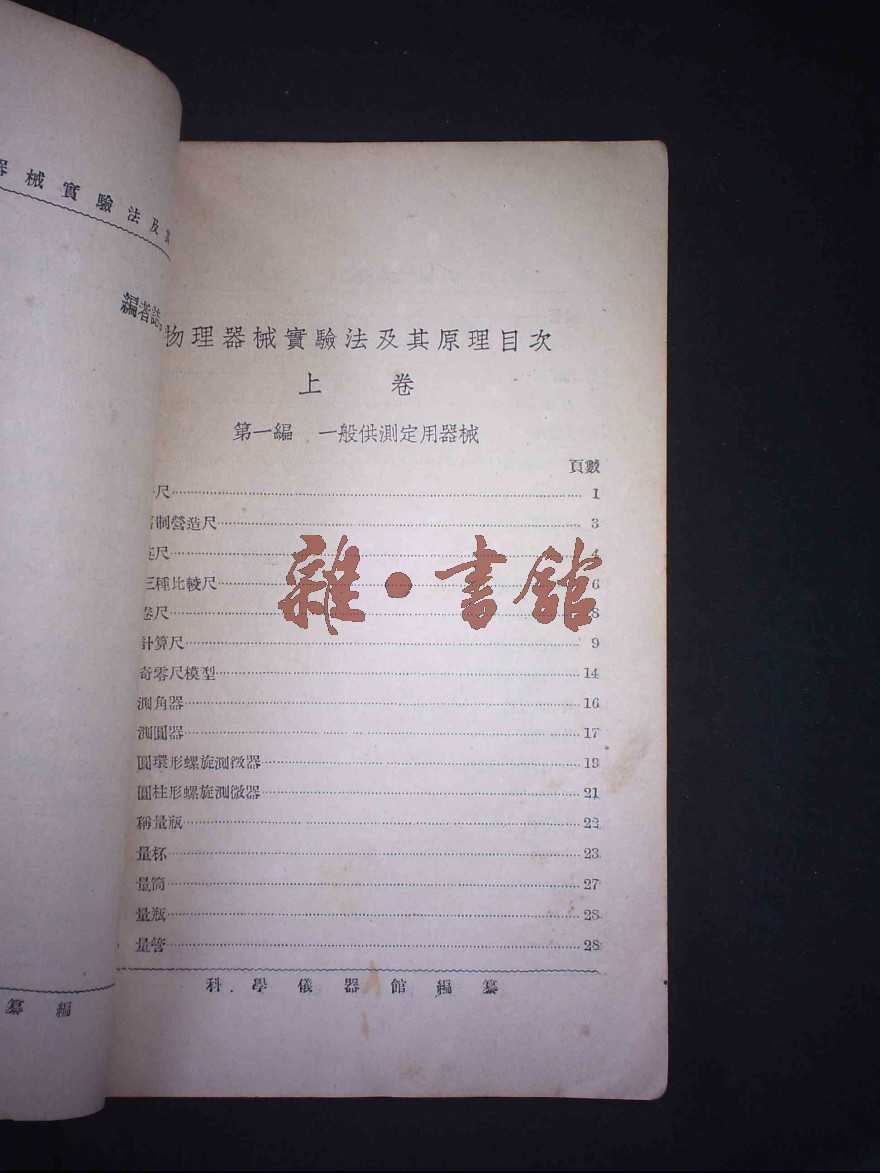 械實驗法及
編者誌。
纂編
物理器械實驗法及其原理目次
上卷
第一編 一般供測定用器械
頁數
尺 1
制營造尺 3
尺 4
三種比較尺 6
卷尺 8
計算尺 9
奇零尺模型 14
測角器 16
測圓器 17
圓環形螺旋測微器 19
圓柱形螺旋測微器 21
稱量瓶 22
量杯 23
量筒 27
量瓶 28
量管 28
科學儀器館編纂
雜·書館